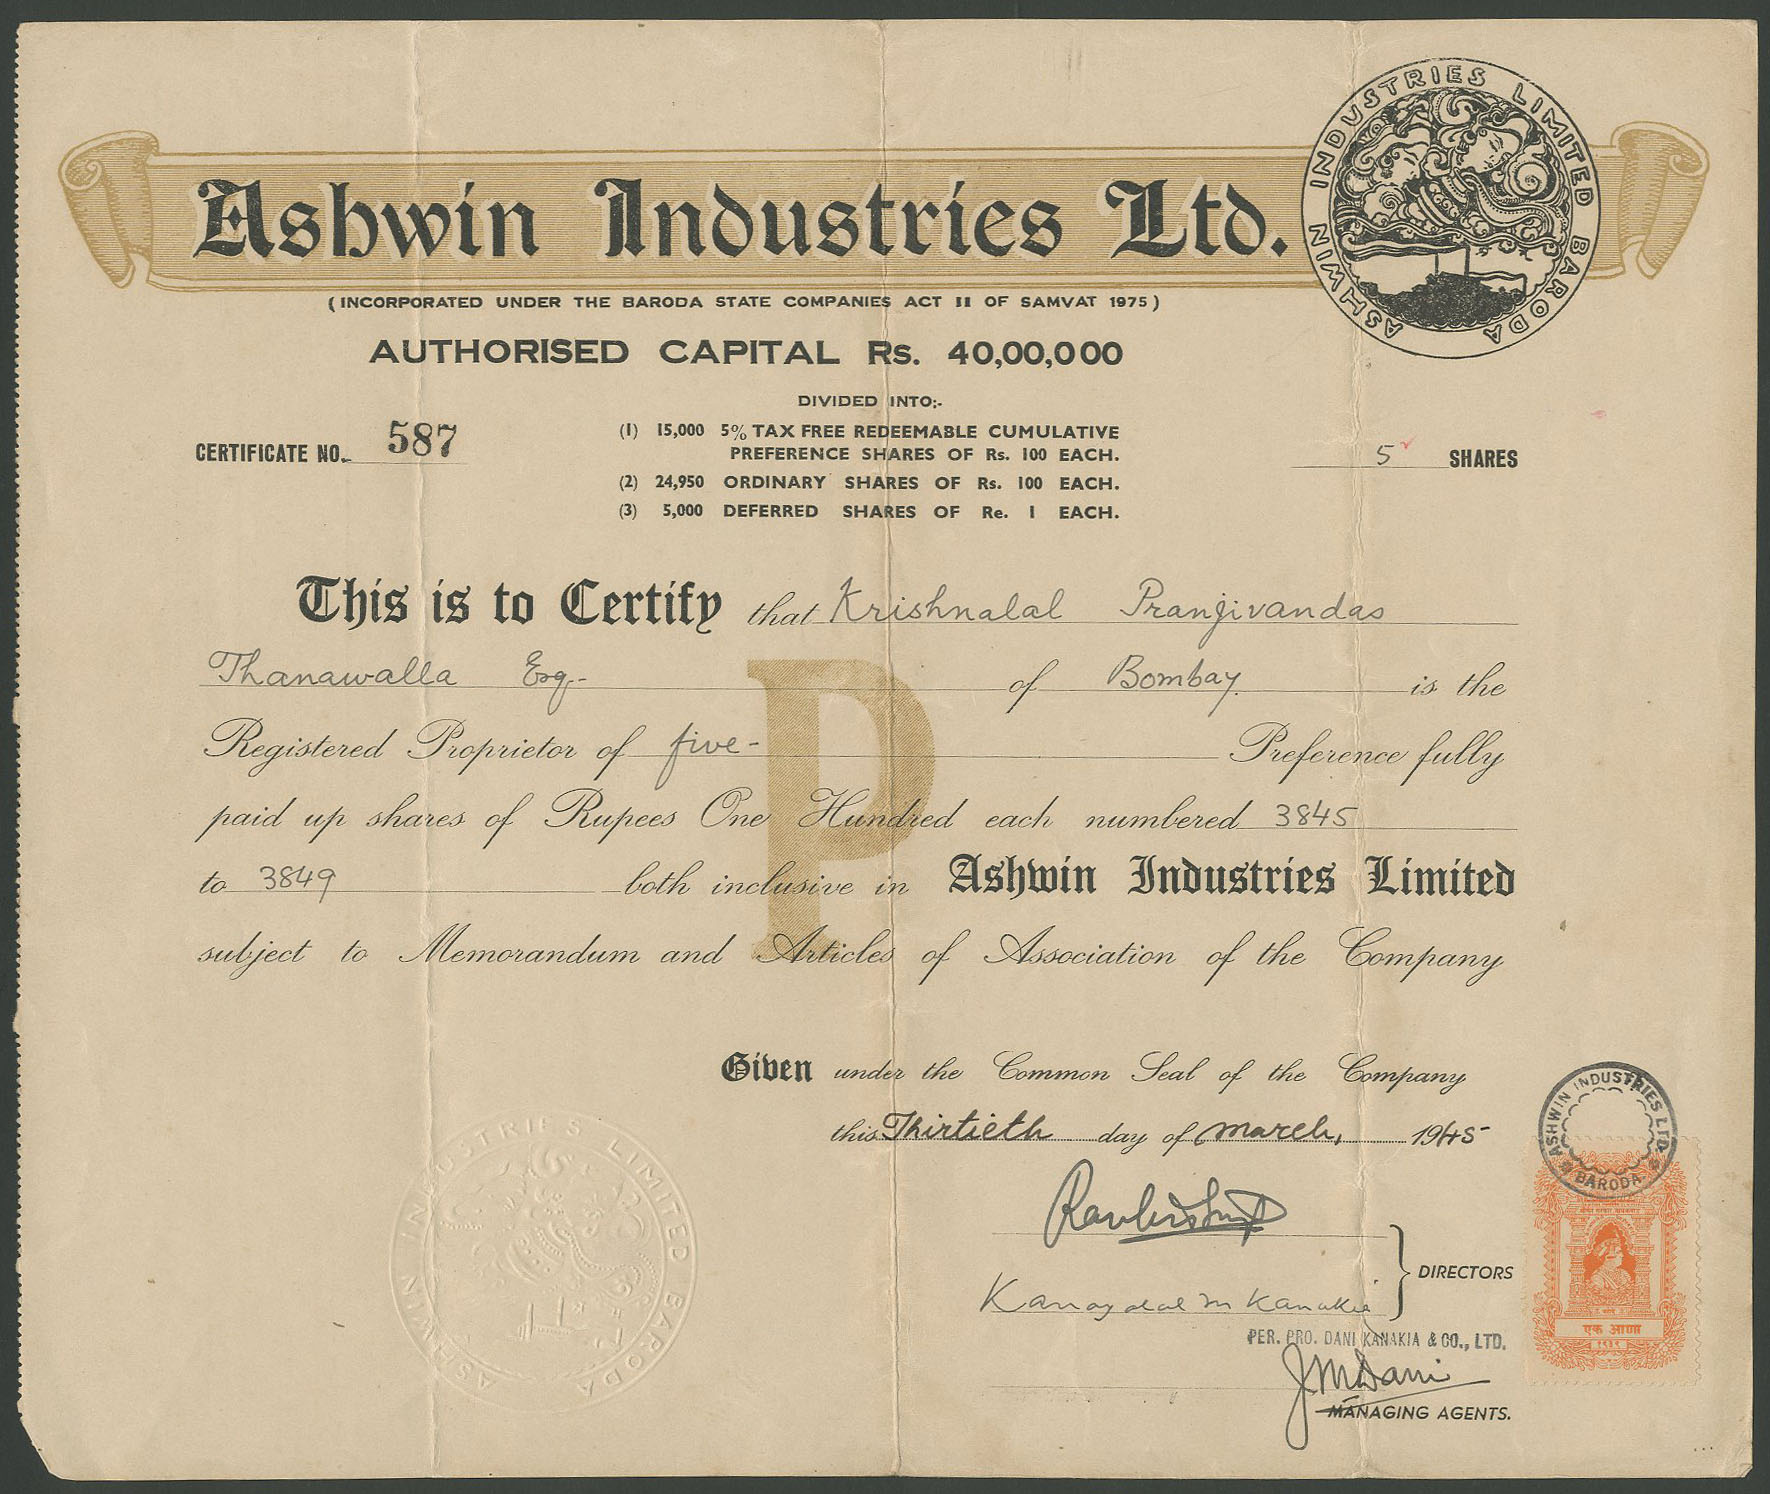 Ashwin Industries Ltd.
ASHWIN INDUSTRIES LIMITED BARODA
(INCORPORATED UNDER THE BARODA STATE COMPANIES ACT II OF SAMVAT 1975)
AUTHORISED CAPITAL Rs. 40,00,000
DIVIDED INTO:-
(1) 15,000 5% TAX FREE REDEEMABLE CUMULATIVE
PREFERENCE SHARES OF Rs. 100 EACH.
(2) 24,950 ORDINARY SHARES OF Rs. 100 EACH.
(3) 5,000 DEFERRED SHARES OF Re. 1 EACH.
CERTIFICATE NO. 587
5 SHARES
This is to Certify that Krishnalal Pranjivandas
Thanawalla Esq.- of Bombay. is the
Registered Proprietor of five- Preference fully
paid up shares of Rupees One Hundred each numbered 3845
to 3849 both inclusive in Ashwin Industries Limited
subject to Memorandum and Articles of Association of the Company
P
Given under the Common Seal of the Company
this Thirtieth day of march, 1945
ASHWIN INDUSTRIES LTD.
BARODA
ASHWIN INDUSTRIES LIMITED BARODA
Kanaiyalal M Kanakia
DIRECTORS
PER. PRO. DANI KANAKIA & CO., LTD.
J M Dani
MANAGING AGENTS.
एक आणा